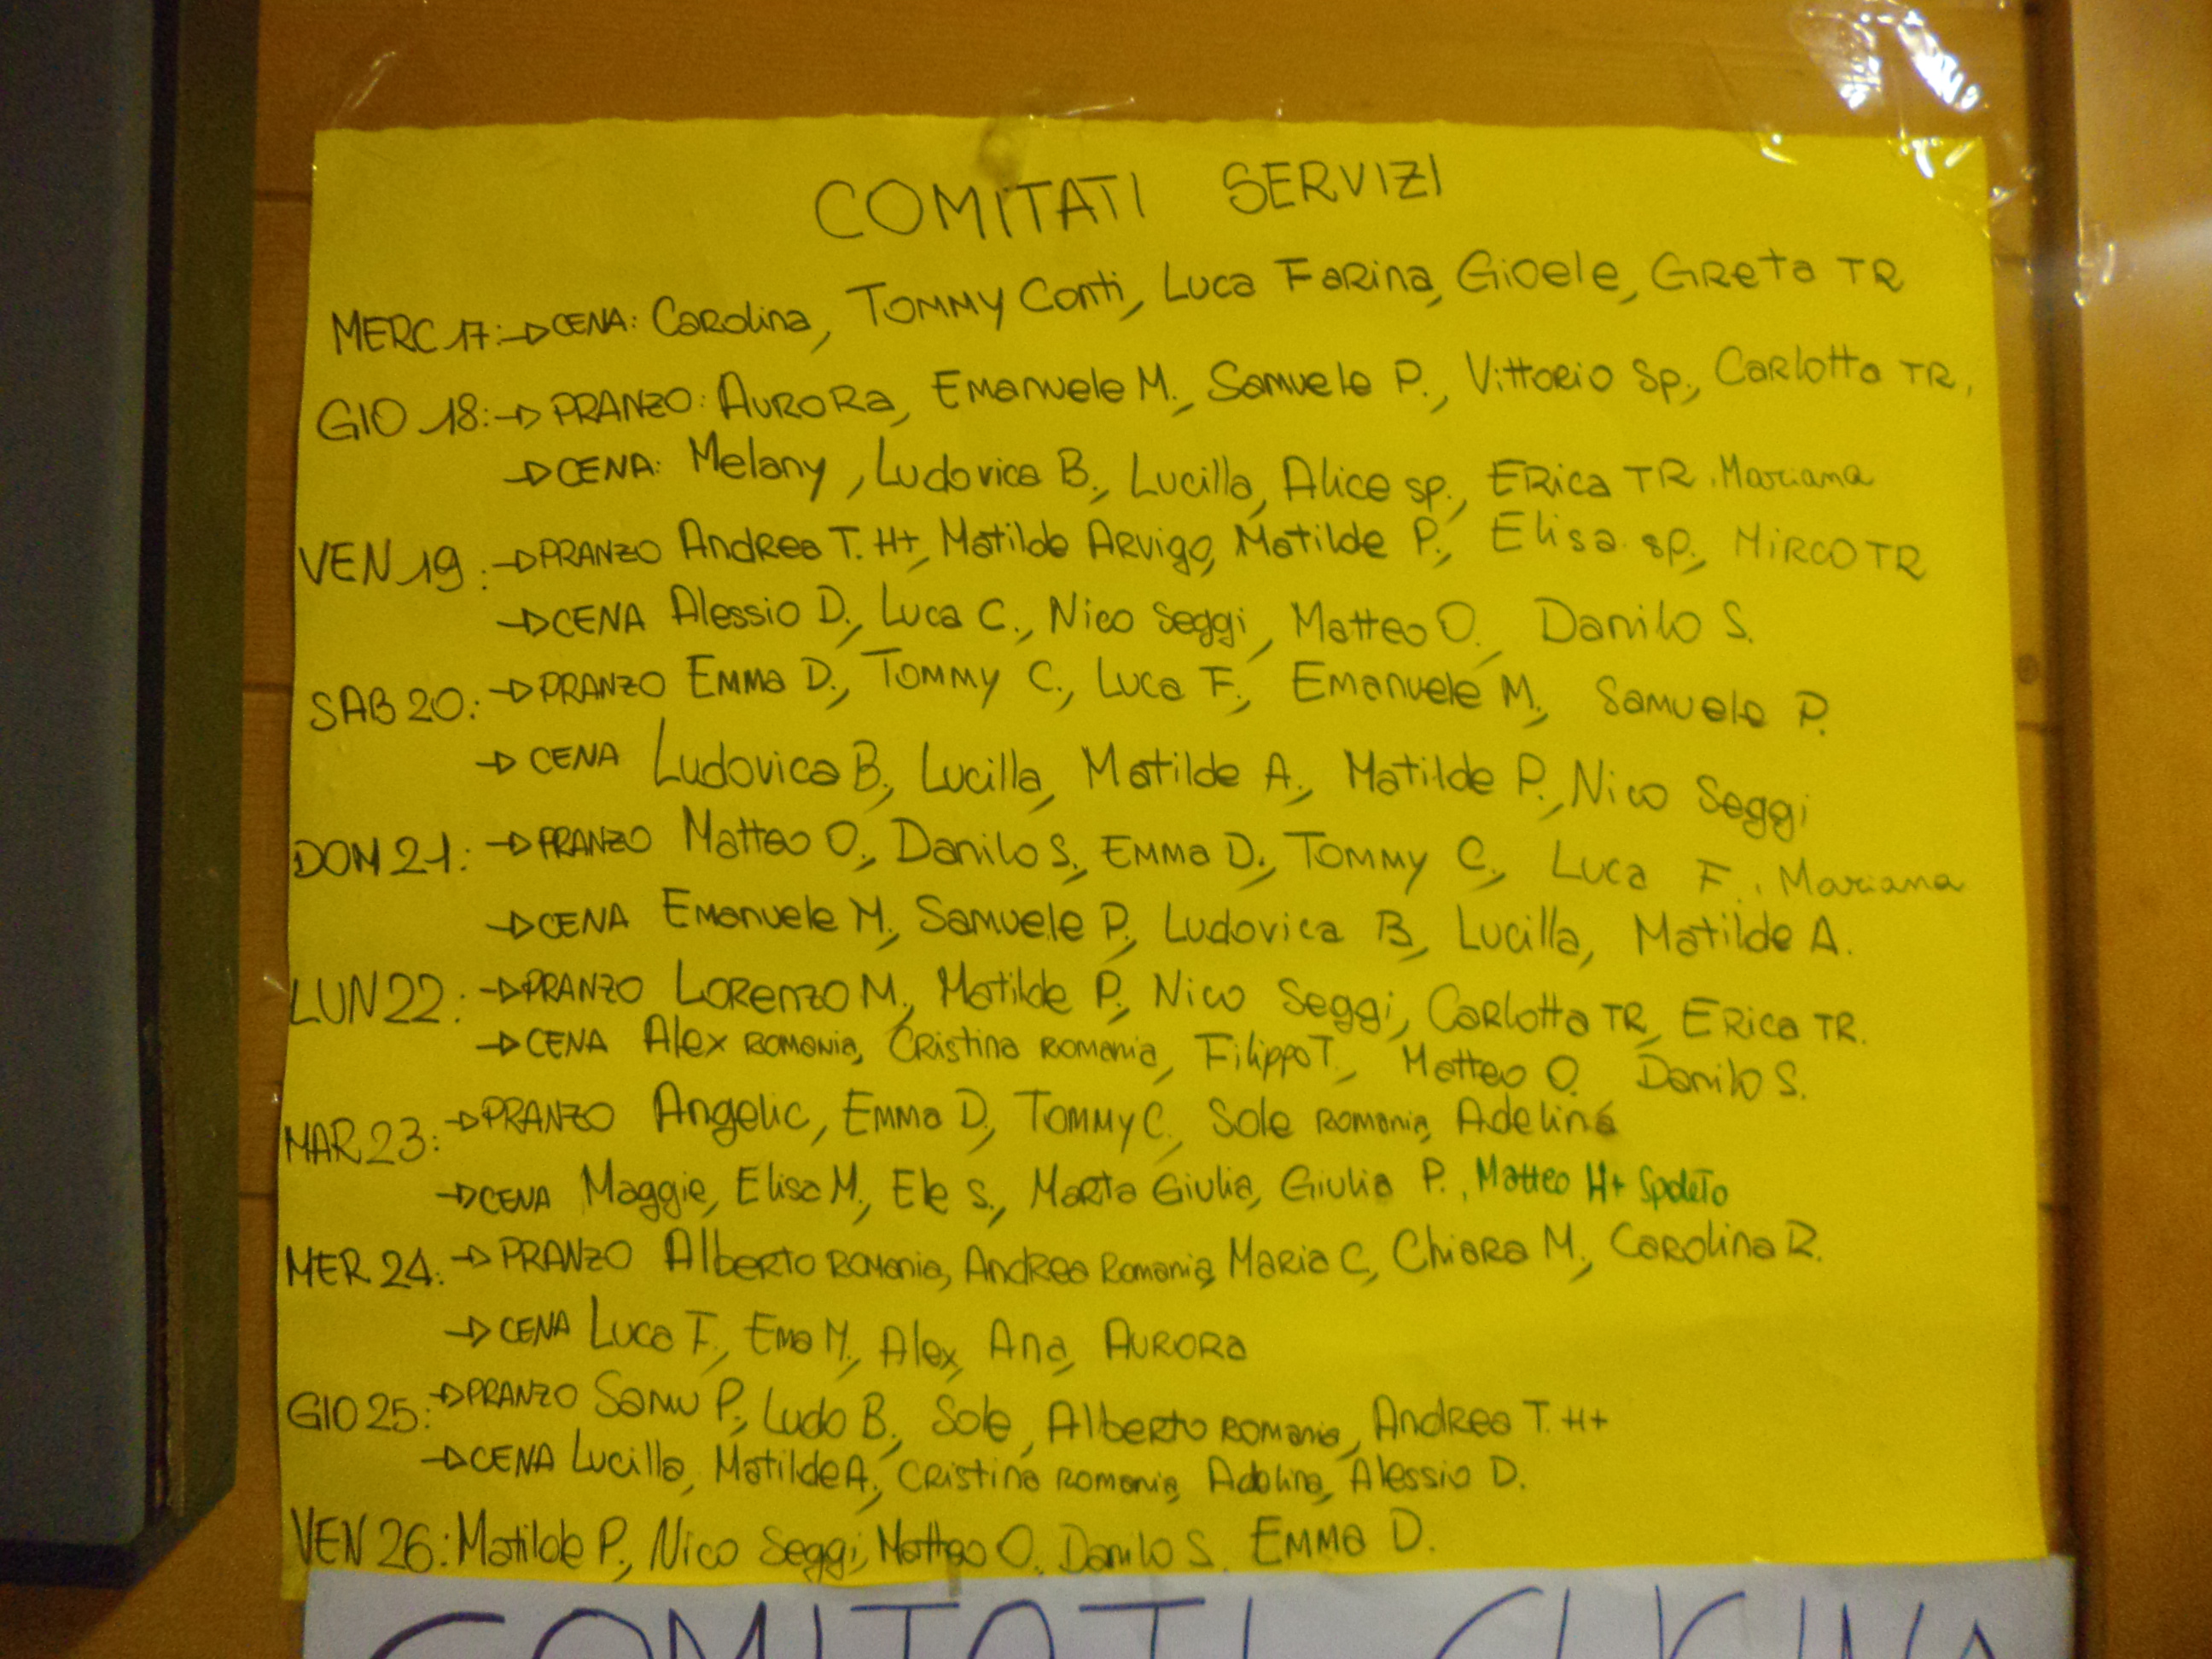 COMITATI SERVIZI
MERC 17: → CENA: Carolina, Tommy Conti, Luca Farina, Gioele, Greta TR
GIO 18: → PRANZO: Aurora, Emanuele M., Samuele P., Vittorio Sp., Carlotta TR,
→ CENA: Melany, Ludovica B., Lucilla, Alice sp., Erica TR. Mariana
VEN 19: → PRANZO Andrea T. H+, Matilde Arvigo, Matilde P., Elisa sp., Mirco TR
→ CENA Alessio D., Luca C., Nico Seggi, Matteo O., Danilo S.
SAB 20: → PRANZO Emma D., Tommy C., Luca F., Emanuele M., Samuele P.
→ CENA Ludovica B., Lucilla, Matilde A., Matilde P., Nico Seggi
DOM 21: → PRANZO Matteo O., Danilo S., Emma D., Tommy C., Luca F., Mariana
→ CENA Emanuele M., Samuele P., Ludovica B., Lucilla, Matilde A.
LUN 22: → PRANZO Lorenzo M., Matilde P., Nico Seggi, Carlotta TR, Erica TR.
→ CENA Alex Romania, Cristina Romania, Filippo T., Matteo O. Danilo S.
MAR 23: → PRANZO Angelic, Emma D., Tommy C., Sole Romania, Adelina
→ CENA Maggie, Elisa M., Ele S., Marta Giulia, Giulia P., Matteo H+ Spoleto
MER 24: → PRANZO Alberto Romania, Andrea Romania, Maria C., Chiara M., Carolina R.
→ CENA Luca F., Ema M., Alex, Ana, Aurora
GIO 25: → PRANZO Samu P., Ludo B., Sole, Alberto Romania, Andrea T. H+
→ CENA Lucilla, Matilde A., Cristina Romania, Adelina, Alessio D.
VEN 26: Matilde P., Nico Seggi, Matteo O. Danilo S. Emma D.
COMITATI CUCINA